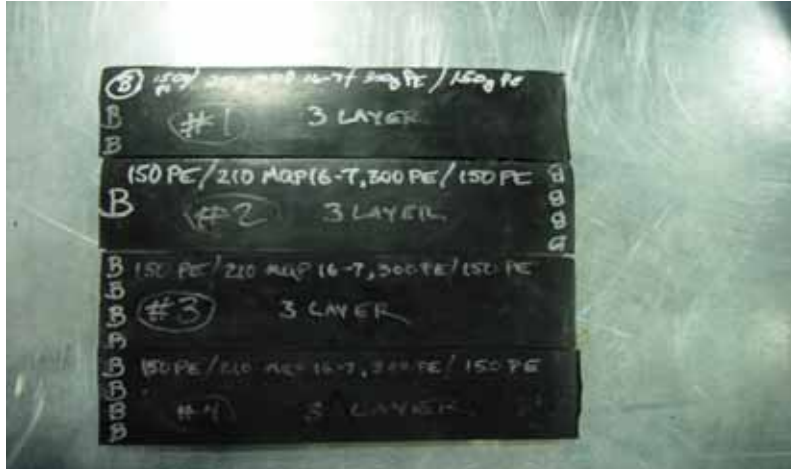 B 150g 16-7/ 300g PE / 150g PE
B #1 3 LAYER
B
150 PE/210 MQP16-7,300 PE/150 PE B
B #2 3 LAYER B
B
B
B 150 PE/210 MQP 16-7,300 PE/150 PE
B
B #3 3 LAYER
B
B 150 PE/210 16-7,300 PE/150 PE
B
B #4 3 LAYER
B